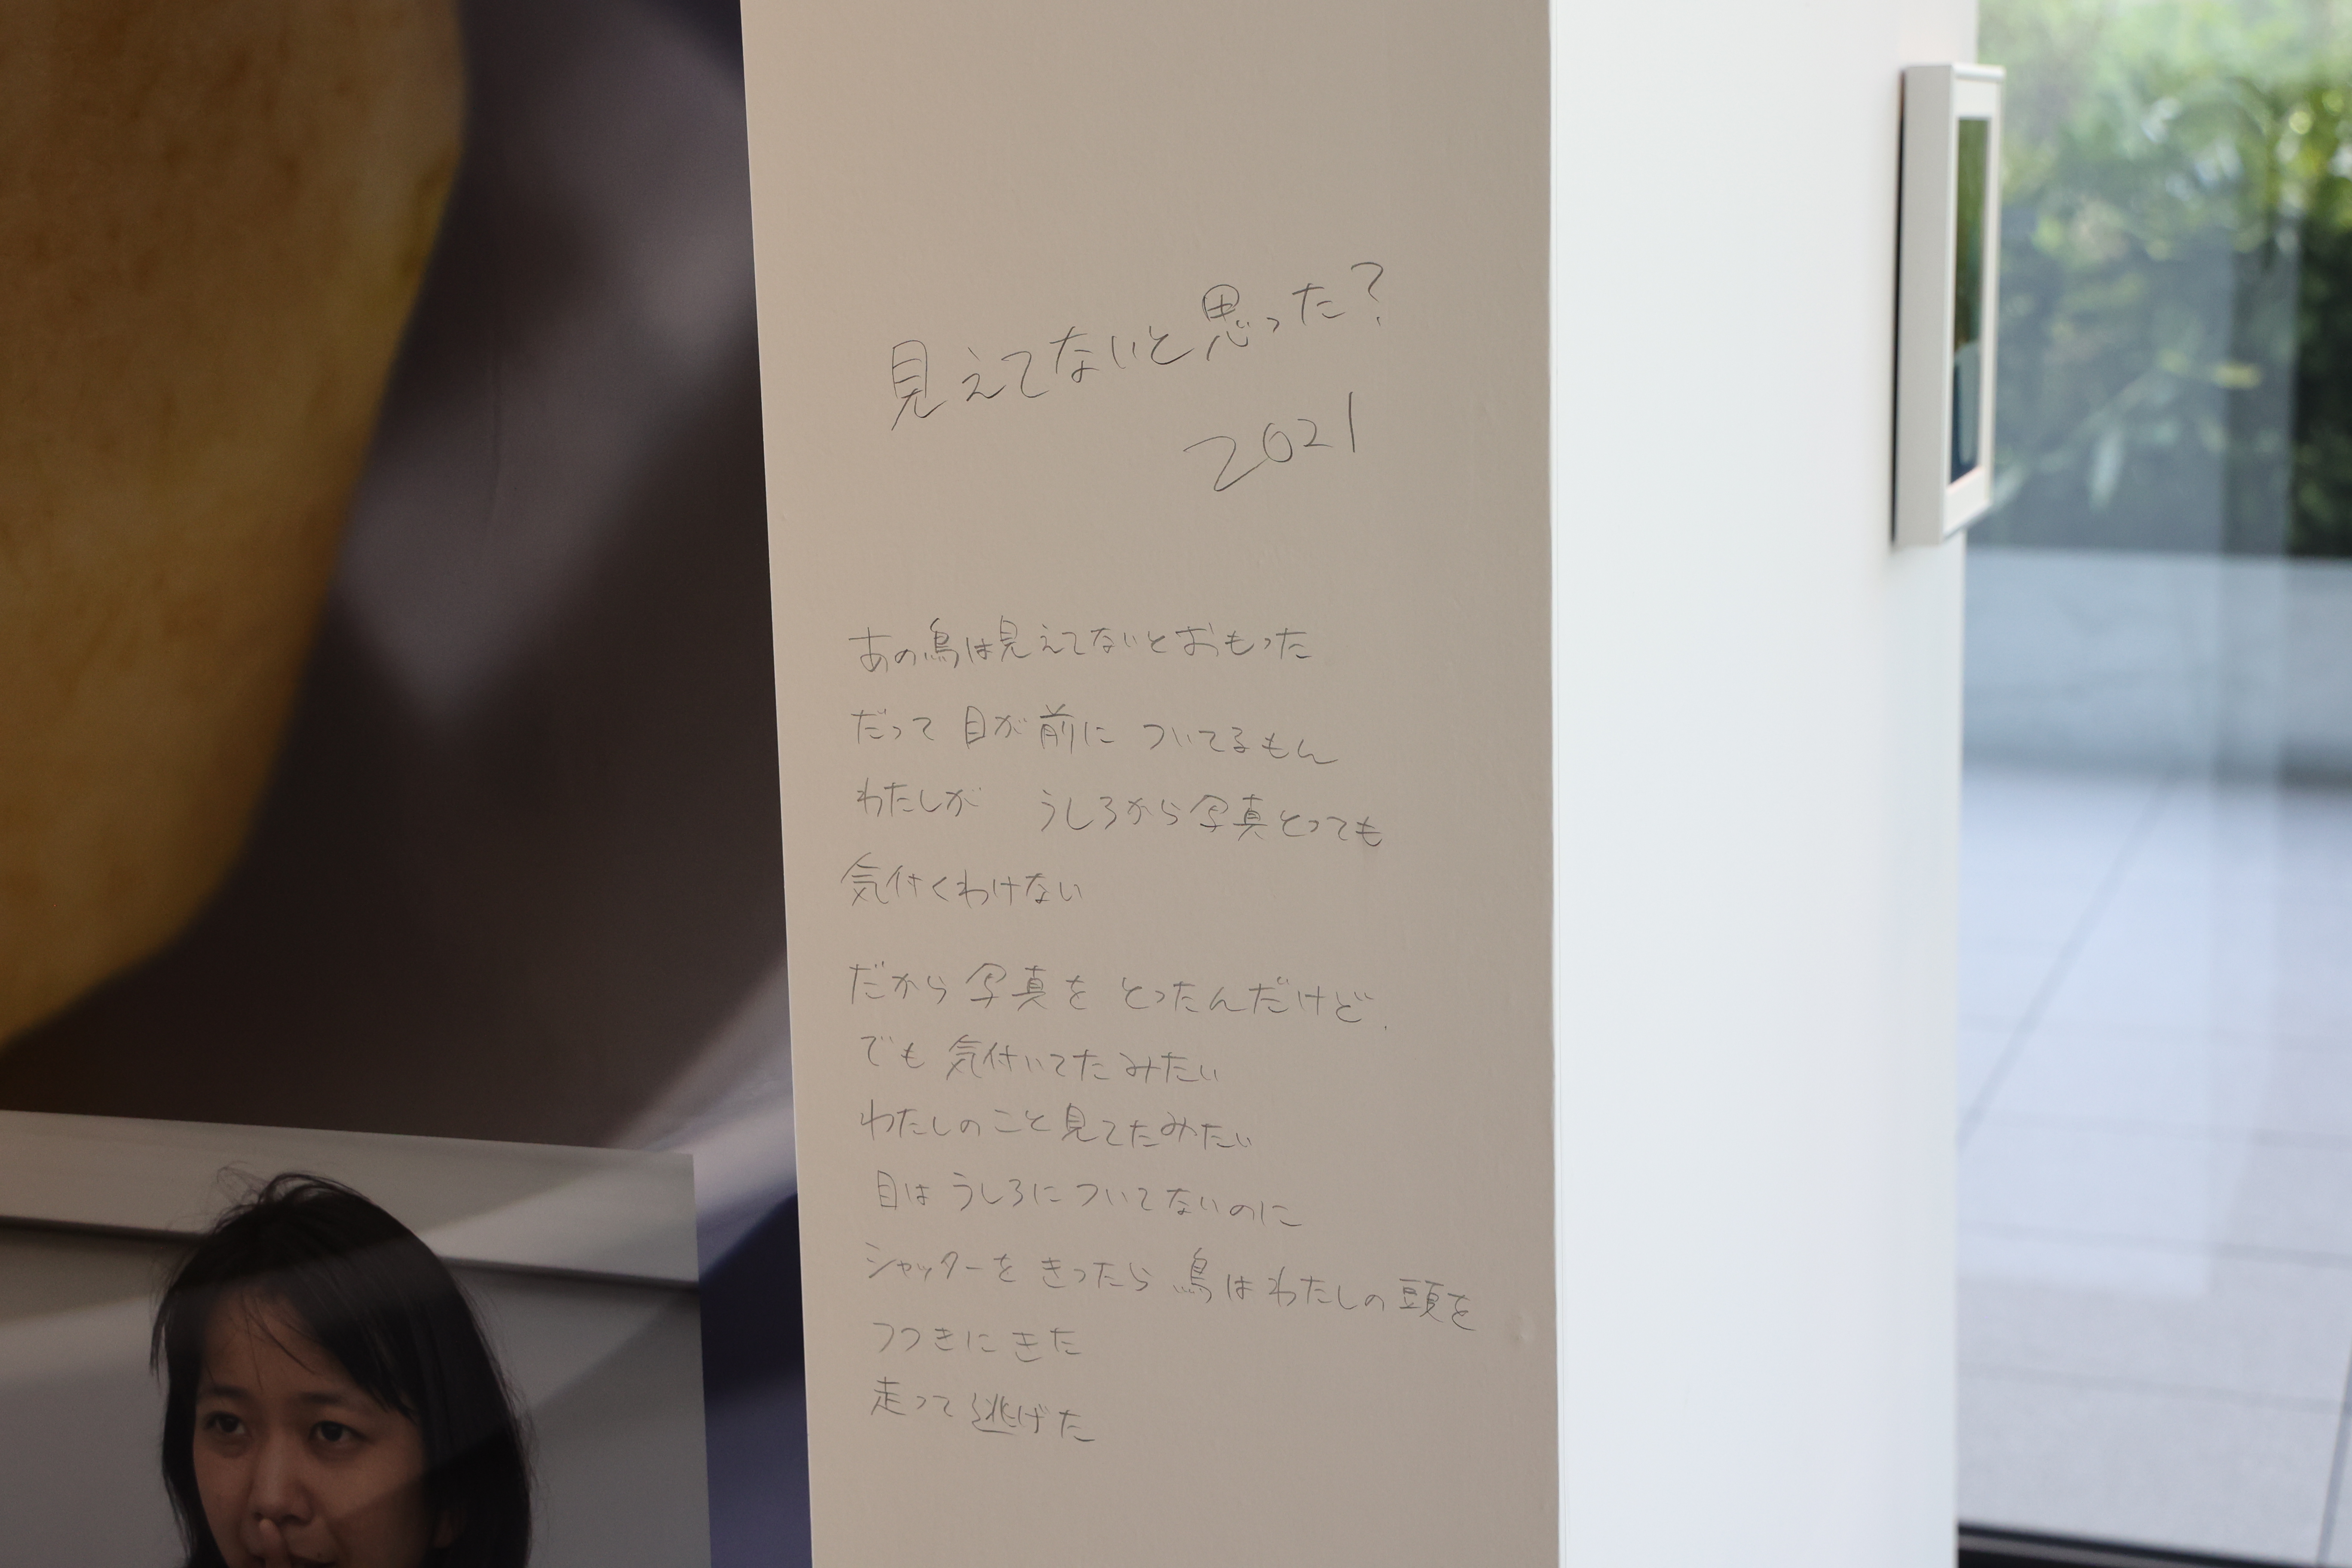 見えてないと思った?
2021
あの鳥は見えてないとおもった
だって 目が前に ついてるもん
わたしが うしろから写真とっても
気付くわけない
だから 写真を とったんだけど、
でも 気付いてたみたい
わたしのこと見てたみたい
目は うしろについてないのに
シャッターを きったら 鳥は わたしの 頭を
つつきに きた
走って 逃げた